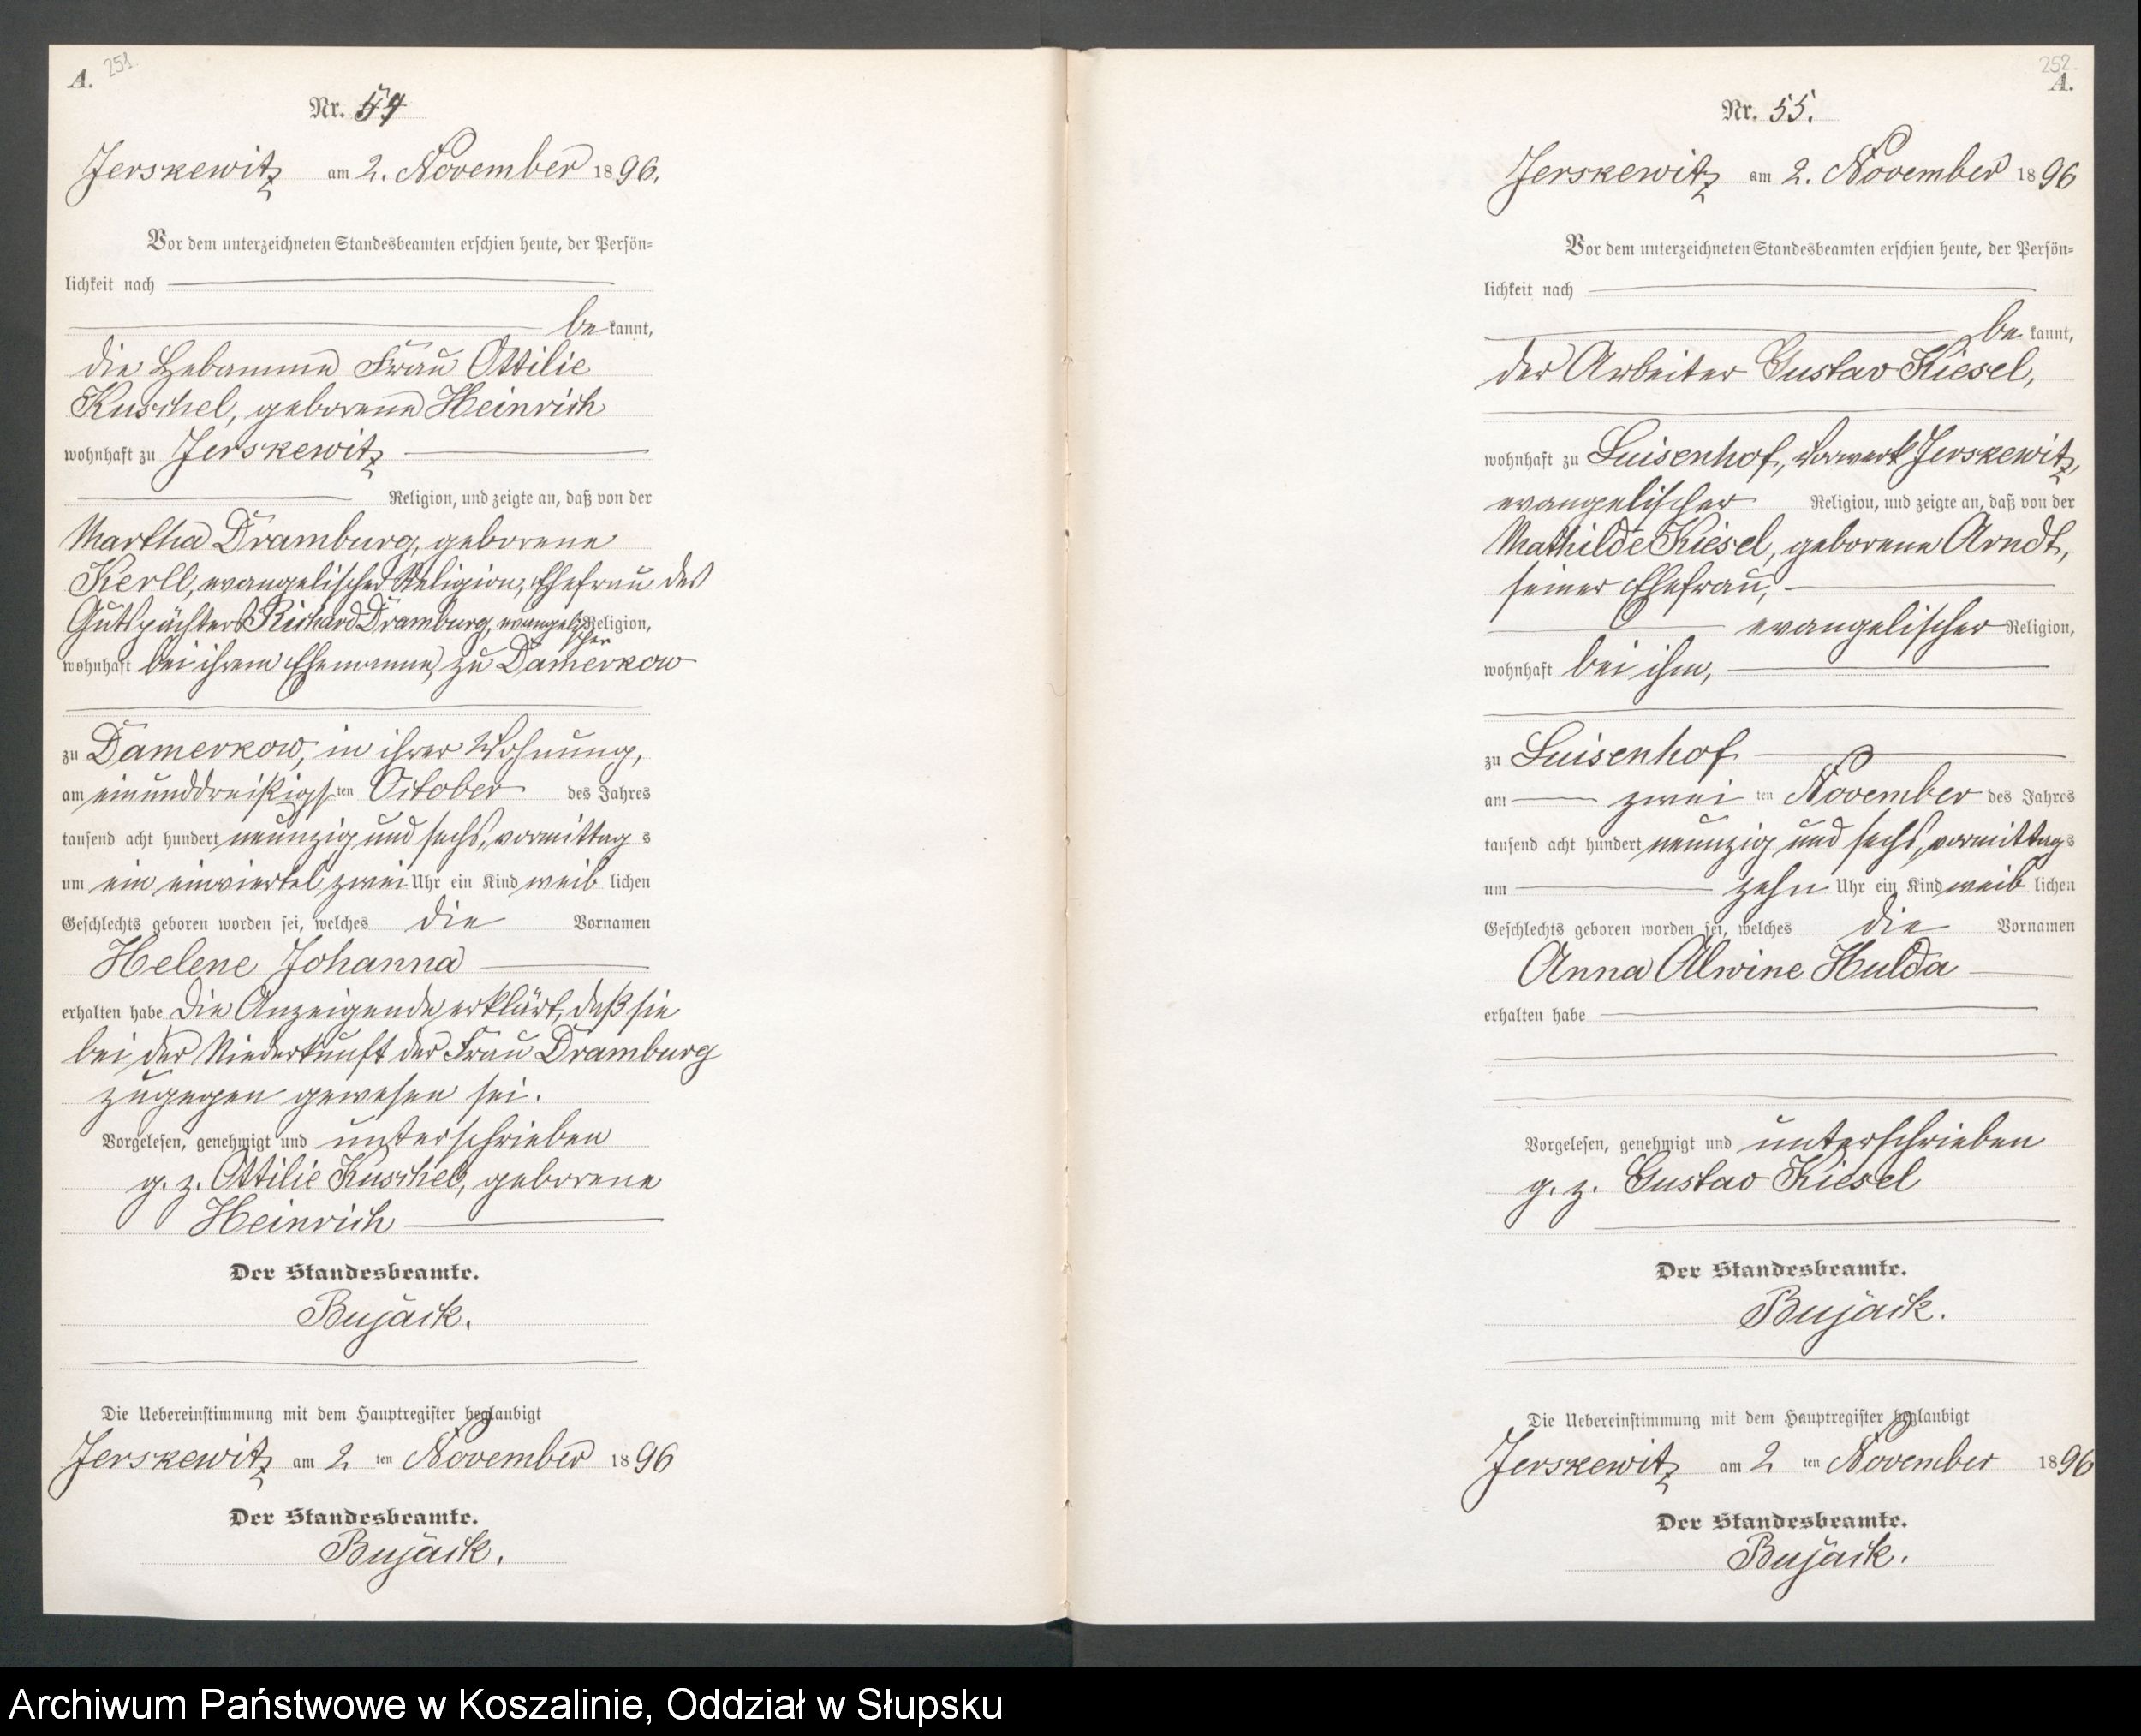 A. 251
Nr. 54
Jerskewitz am 2. November 1896.
Vor dem unterzeichneten Standesbeamten erschien heute, der Persön=
lichkeit nach
bekannt,
die Hebamme Frau Ottilie
Kuschel, geborene Heinrich
wohnhaft zu Jerskewitz
Religion, und zeigte an, daß von der
Martha Dramburg, geborene
Kerll, evangelischer Religion, Ehefrau des
Gutspächters Richard Dramburg, evangelischer Religion,
wohnhaft bei ihrem Ehemanne, zu Damerkow
zu Damerkow, in ihrer Wohnung,
am einunddreißigsten October des Jahres
tausend acht hundert neunzig und sechs, vormittags
um ein einviertel zwei Uhr ein Kind weiblichen
Geschlechts geboren worden sei, welches die Vornamen
Helene Johanna
erhalten habe Die Anzeigende erklärt, daß sie
bei der Niederkunft der Frau Dramburg
zugegen gewesen sei.
Vorgelesen, genehmigt und unterschrieben
g. z. Ottilie Kuschel, geborene
Heinrich
Der Standesbeamte.
Bujack.
Die Uebereinstimmung mit dem Hauptregister beglaubigt
Jerskewitz am 2 ten November 1896
Der Standesbeamte.
Bujack.
252.
A.
Nr. 55.
Jerskewitz am 2. November 1896
Vor dem unterzeichneten Standesbeamten erschien heute, der Persön=
lichkeit nach
bekannt,
der Arbeiter Gustav Kiesel,
wohnhaft zu Luisenhof, Vorwerk Jerskewitz,
evangelischer Religion, und zeigte an, daß von der
Mathilde Kiesel, geborene Arndt,
seiner Ehefrau,
evangelischer Religion,
wohnhaft bei ihm,
zu Luisenhof
am zwei ten November des Jahres
tausend acht hundert neunzig und sechs, vormittags
um zehn Uhr ein Kind weiblichen
Geschlechts geboren worden sei, welches die Vornamen
Anna Alwine Hulda
erhalten habe
Vorgelesen, genehmigt und unterschrieben
g. z. Gustav Kiesel
Der Standesbeamte.
Bujack.
Die Uebereinstimmung mit dem Hauptregister beglaubigt
Jerskewitz am 2 ten November 1896
Der Standesbeamte.
Bujack.
Archiwum Państwowe w Koszalinie, Oddział w Słupsku